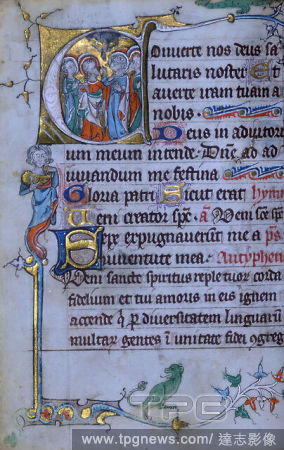 Converte nos deus sa
lutaris noster Et
averte iram tuam a
nobis
Deus in adiutori
um meum intende Dne ad ad
iuvandum me festina
Gloria patri Sicut erat hymn
Veni creator spc a Veni sce sps
Sepe expugnaverunt me a ps
iuventute mea Antyphen
Veni sancte spiritus reple tuor corda
fidelium et tui amoris in eis ignem
accende q p diversitatem linguaru
multar gentes i unitate fidei ogreg
TPG
www.tpgnews.com/ 達志影像